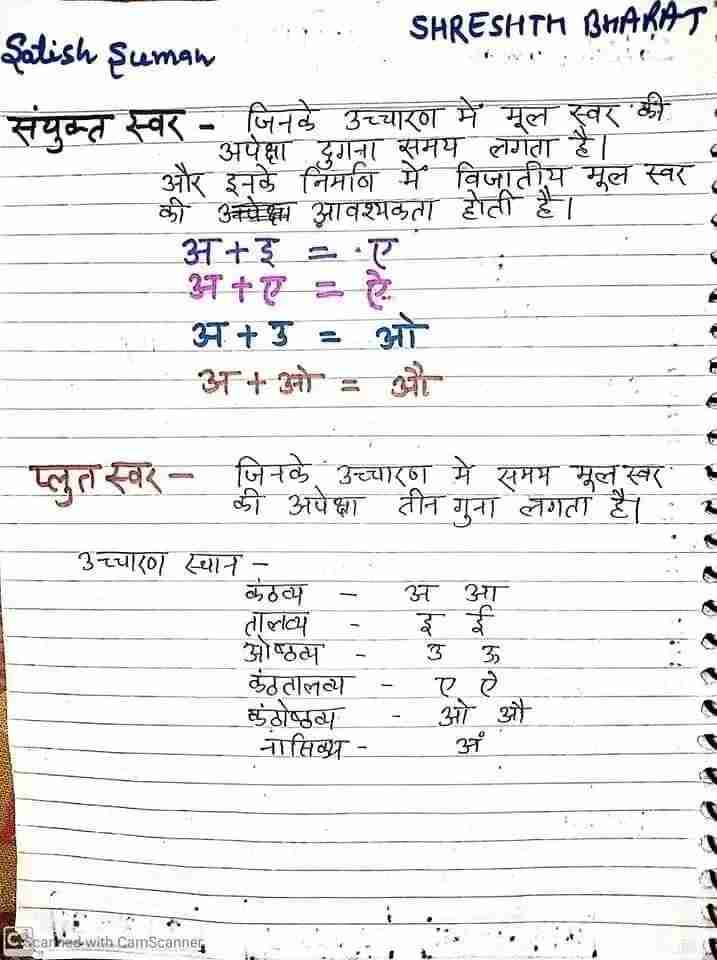 Satish Suman
SHRESHTH BHARAT
संयुक्त स्वर - जिनके उच्चारण में मूल स्वर की
अपेक्षा दुगना समय लगता है।
और इनके निर्माण में विजातीय मूल स्वर
की अपेक्षा आवश्यकता होती है।
अ + इ = ए
अ + ए = ऐ
अ + उ = ओ
अ + ओ = औ
प्लुत स्वर - जिनके उच्चारण मे समय मूल स्वर
की अपेक्षा तीन गुना लगता है।
उच्चारण स्थान -
कंठव्य - अ आ
तालव्य - इ ई
ओष्ठव्य - उ ऊ
कंठतालव्य - ए ऐ
कंठोष्ठव्य - ओ औ
- अं
CS Scanned with CamScanner